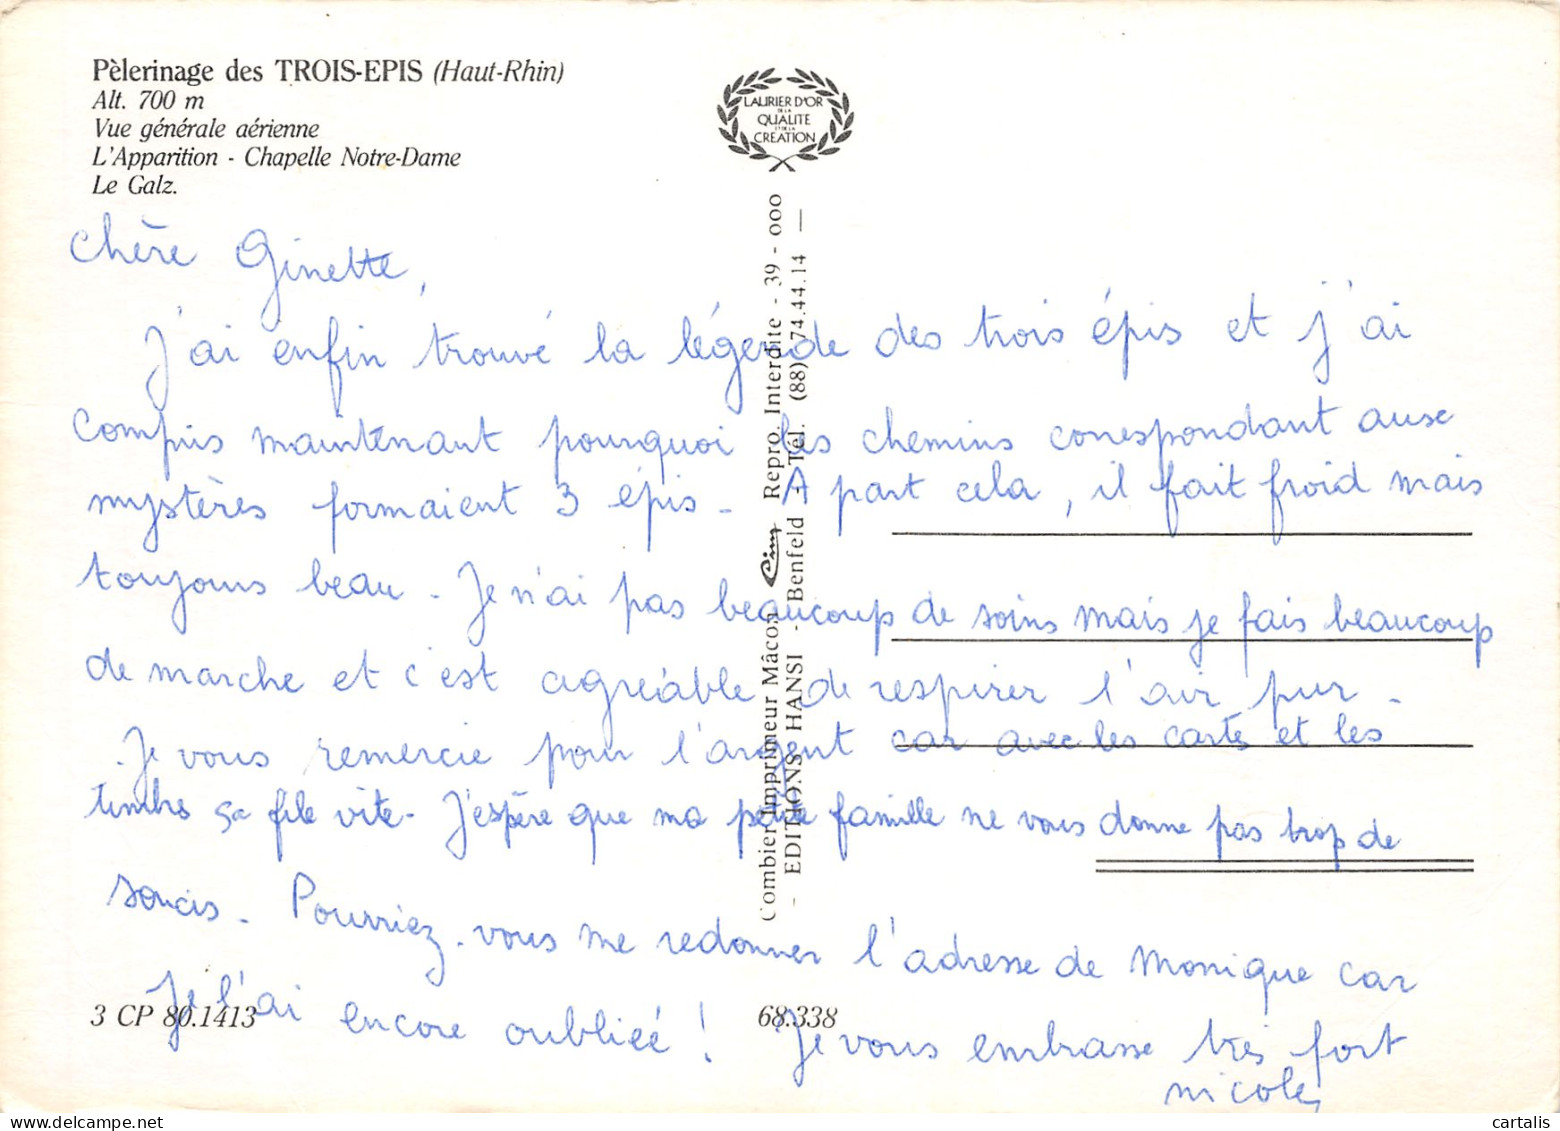 Pèlerinage des TROIS-EPIS (Haut-Rhin)
Alt. 700 m
Vue générale aérienne
L'Apparition - Chapelle Notre-Dame
Le Galz.
LAURIER D'OR
DE LA
QUALITE
ET DE LA
CREATION
Combier Imprimeur Mâcon Cim Repro. Interdite - 39 - 000
- EDITIONS HANSI - Benfeld - Tél. (88) 74.44.14 —
Chère Ginette,
J'ai enfin trouvé la légende des trois épis et j'ai
compris maintenant pourquoi les chemins correspondant aux
mystères formaient 3 épis - A part cela, il fait froid mais
toujours beau - Je n'ai pas beaucoup de soins mais je fais beaucoup
de marche et c'est agréable de respirer l'air pur -
Je vous remercie pour l'argent car avec les cartes et les
timbres ça file vite - J'espère que ma petite famille ne vous donne pas trop de
soucis - Pourriez-vous me redonner l'adresse de Monique car
Je l'ai encore oubliée ! Je vous embrasse très fort
Nicole
3 CP 80.1413
68.338
cartalis